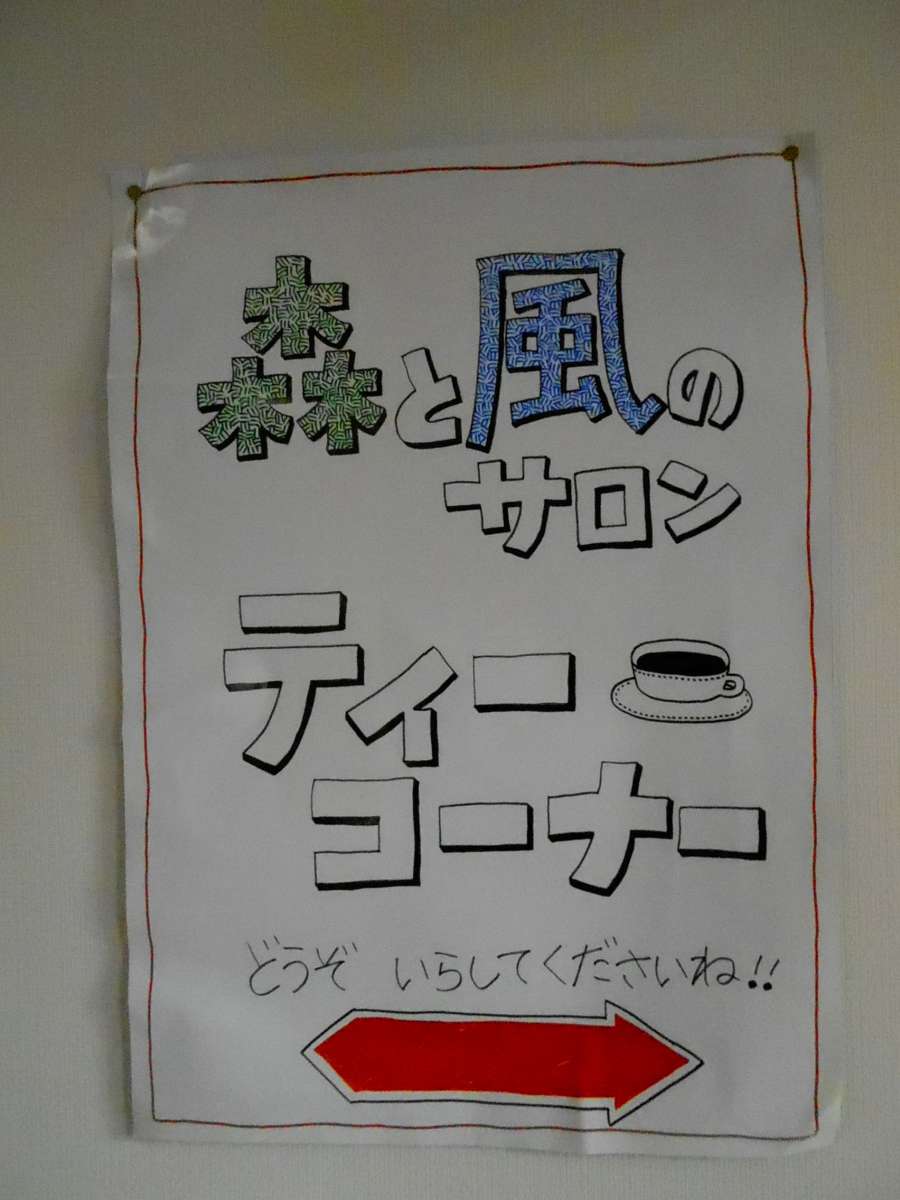 森と風の
サロン
ティー
コーナー
どうぞ いらしてくださいね!!